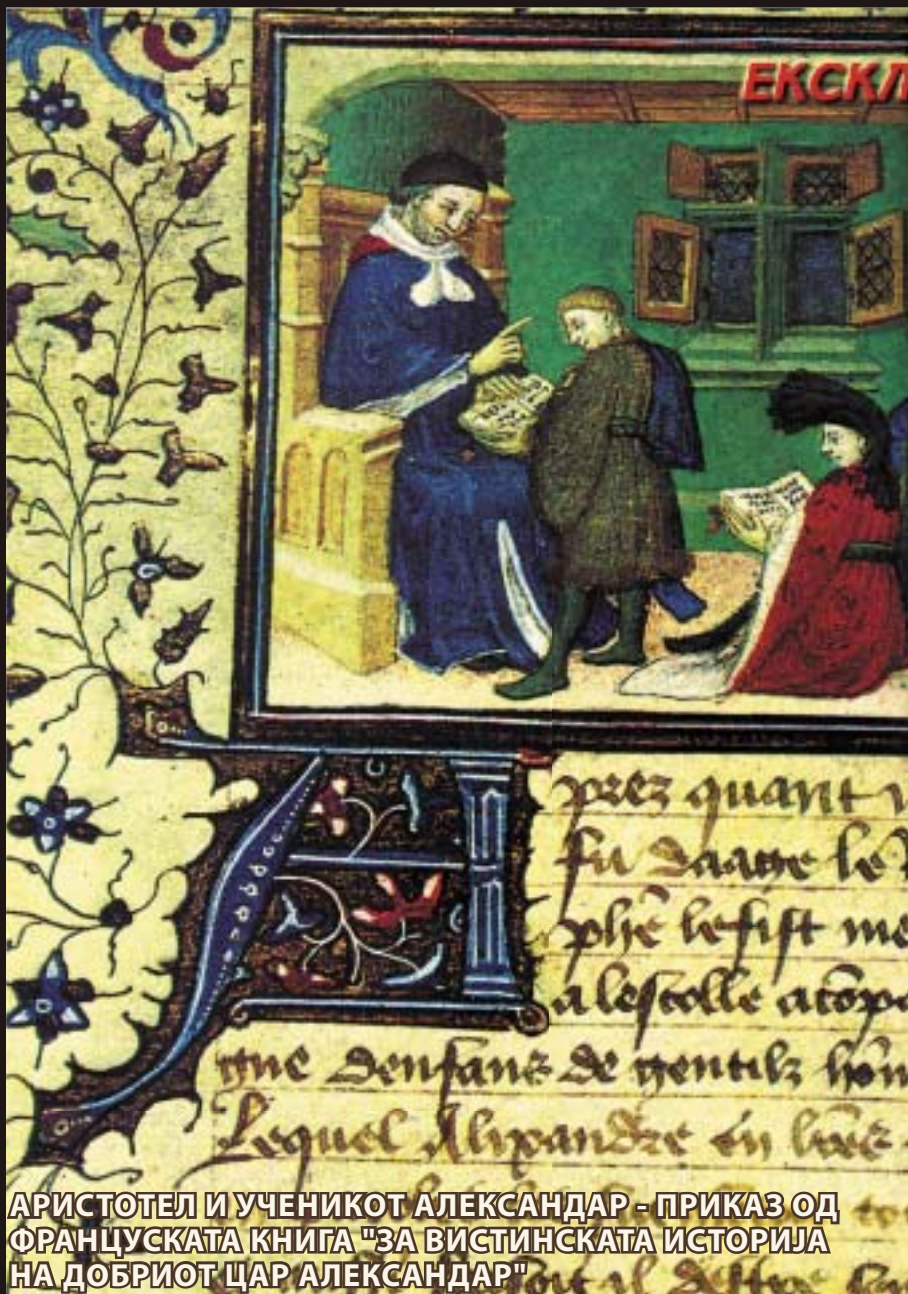 ЕКСКЛ
Aprez quant
fu daage le
phē le fist me
a lescolle acōpa
gne denfans de gentilz hōm
Lequel Alixandre en
АРИСТОТЕЛ И УЧЕНИКОТ АЛЕКСАНДАР - ПРИКАЗ ОД
ФРАНЦУСКАТА КНИГА "ЗА ВИСТИНСКАТА ИСТОРИЈА
НА ДОБРИОТ ЦАР АЛЕКСАНДАР"